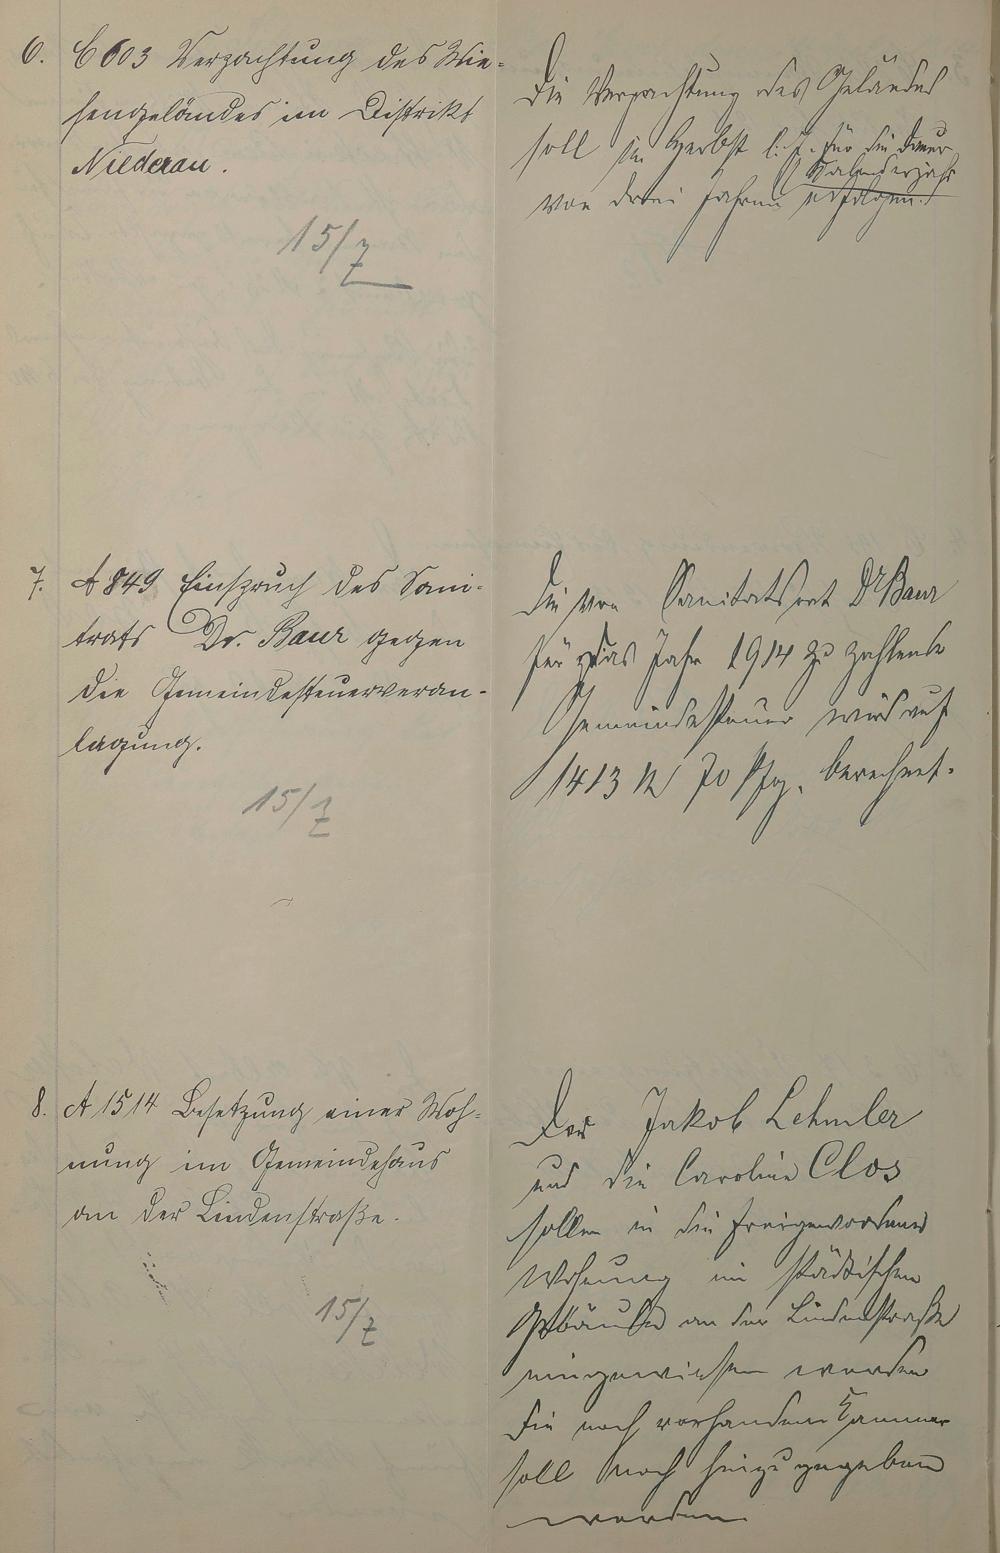 6. C 603 Verpachtung des Wie-
sengeländes im Distrikt
Niederau.
15/7
Die Verpachtung des Geländes
soll im Herbst l. J. für die Dauer
von drei Jahren erfolgen.
7. A 849 Einspruch des Sani-
trats Dr. Baur gegen
die Gemeindesteuerveran-
lagung.
15/7
Die von Sanitätsrat Dr Baur
für das Jahr 1914 zu zahlende
Gemeindesteuer wird auf
1413 M 70 Pfg. berechnet.
8. A 1514 Besetzung einer Woh-
nung im Gemeindehaus
an der Lindenstraße.
15/7
Der Jakob Lehmler
und die Caroline Clos
sollen in die freigewordene
Wohnung im städtischen
Gebäude an der Lindenstraße
eingewiesen werden
Die noch vorhandene Kammer
soll noch hinzugegeben
werden